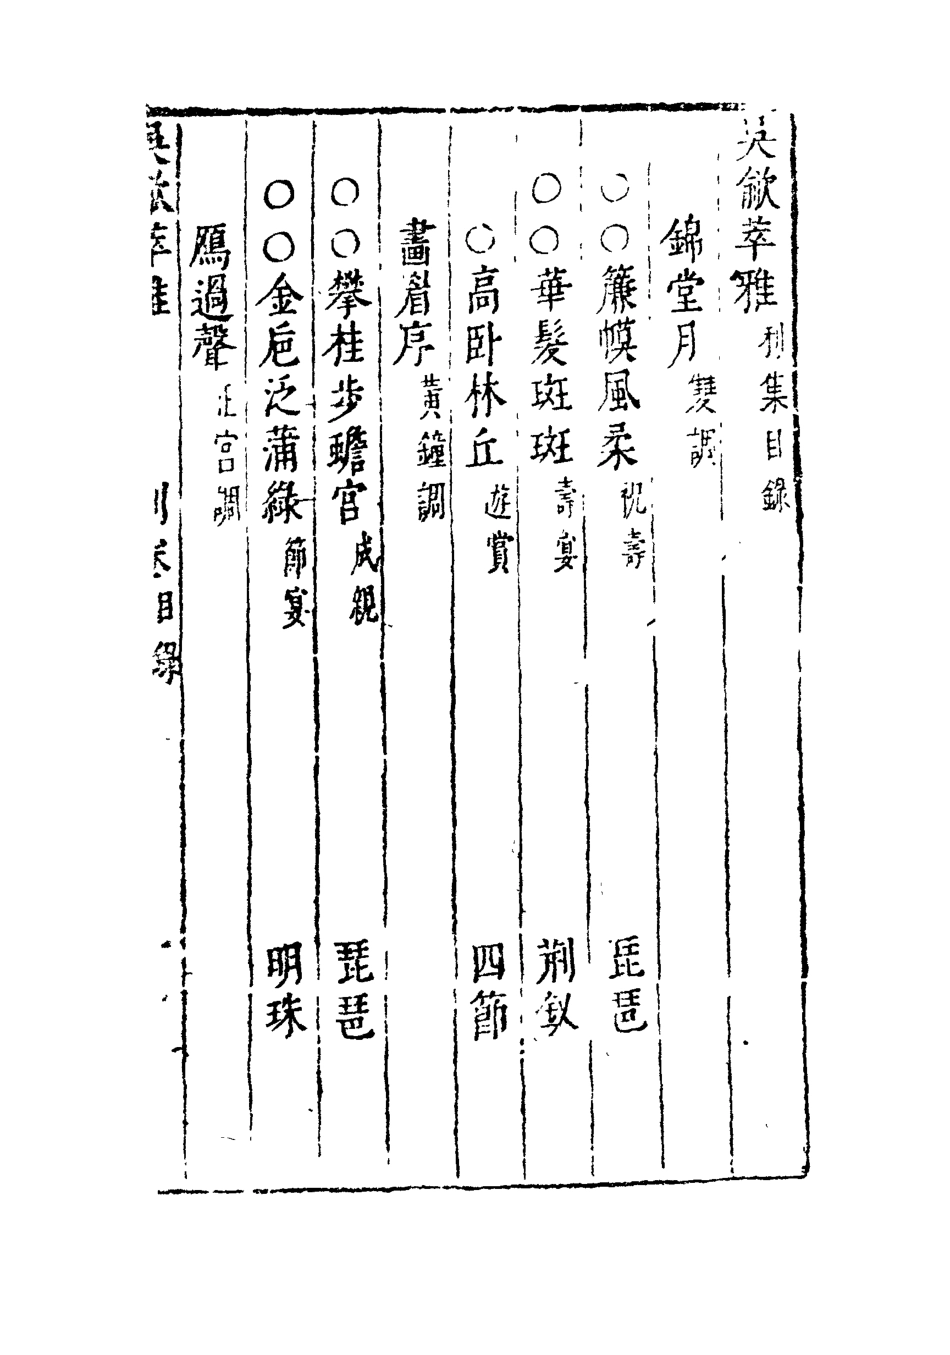 吳歈萃雅利集目錄
錦堂月雙調
○○簾幙風柔祝壽 琵琶
○○華髮斑斑壽宴 荊釵
○高卧林丘遊賞 四節
畵眉序黃鐘調
○○攀桂步蟾宮成親 琵琶
○○金巵泛蒲綠節宴 明珠
鴈過聲正宮調
吳歈萃雅 利卷目錄